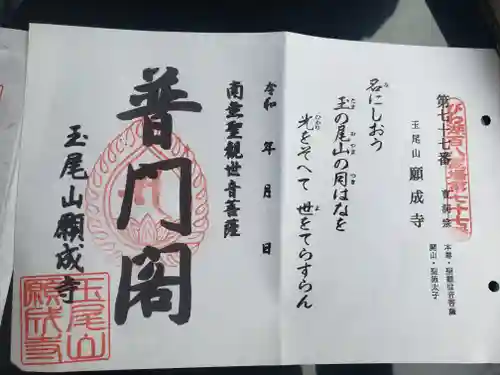 びわ湖百八霊場第七十七番
第七十七番
曹洞宗
玉尾山 願成寺
本尊・聖観世音菩薩
開山・聖徳太子
名にしおう
玉の尾山の月はなを
光をそへて 世をてらすらん
令和 年 月 日
南無聖観世音菩薩
普門閣
玉尾山願成寺
玉尾山
願成寺